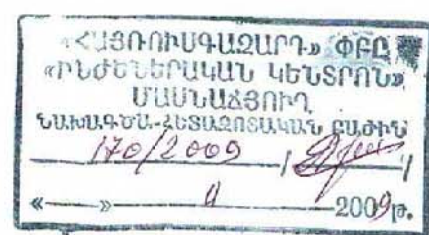 «ՀԱՅՌՈՒՍԳԱԶԱՐԴ» ՓԲԸ
«ԻՆԺԵՆԵՐԱԿԱՆ ԿԵՆՏՐՈՆ»
ՄԱՍՆԱՃՅՈՒՂ
ՆԱԽԱԳԾԱ-ՀԵՏԱԶՈՏԱԿԱՆ ԲԱԺԻՆ
170/2009 /
« » 11 2009թ.